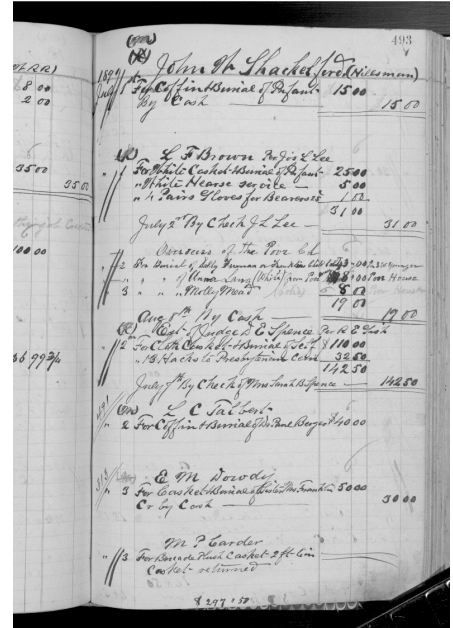 493
John W Shackelford (Nilesman)
1897 July 1 For Coffin & Burial of Infant 15 00
By Cash 15 00
L F Brown Per Jos L Lee
" 1 For White Casket & Burial of Infant 25 00
" White Hearse Service 5 00
" 4 Pairs Gloves for Bearers 1 00
31 00
July 2nd By Check J L Lee 31 00
Overseers of the Poor
" 2 For Burial of
" " of Anna Lang (White) from Poor House
3 " " " Molly Mead 8 00
19 00
Aug 8th By Cash 19 00
Est of Judge D E Spence Per R E
" 2 For Cloth Casket & Burial of Self $110 00
" 13 Hacks to Presbyterian Cem 32 50
142 50
July 7th By Check of Mrs Sarah B Spence 142 50
L C Talbert
" 2 For Coffin & Burial of Dr Paul Berger $40 00
E M Dowdy
" 3 For Casket & Burial of Sister Mrs Franklin 50 00
Cr by Cash 30 00
M P Carder
" 3 For Brocade Plush Casket 2 ft
Casket returned
$297.50
RR)
8 00
2 00
35 00
35 00
100 00
36 99 3/4